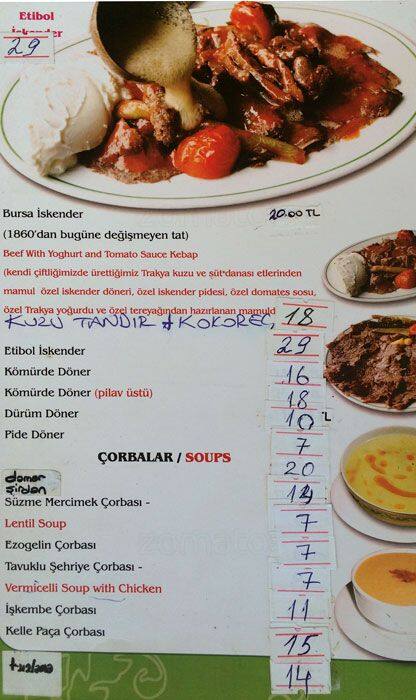 Etibol
İskender
29
Bursa İskender 20.00 TL
(1860'dan bugüne değişmeyen tat)
Beef With Yoghurt and Tomato Sauce Kebap
(kendi çiftliğimizde ürettiğimiz Trakya kuzu ve süt danası etlerinden
mamul özel iskender döneri, özel iskender pidesi, özel domates sosu,
özel Trakya yoğurdu ve özel tereyağından hazırlanan mamuldür
KUZU TANDIR + KOKOREÇ 18
Etibol İskender 29
Kömürde Döner 16
Kömürde Döner (pilav üstü) 18
Dürüm Döner 10 TL
Pide Döner 7
ÇORBALAR / SOUPS 20
damar
şirdan 14
Süzme Mercimek Çorbası -
Lentil Soup 7
Ezogelin Çorbası 7
Tavuklu Şehriye Çorbası -
Vermicelli Soup with Chicken 7
İşkembe Çorbası 11
Kelle Paça Çorbası 15
tuzlama 14
zomato